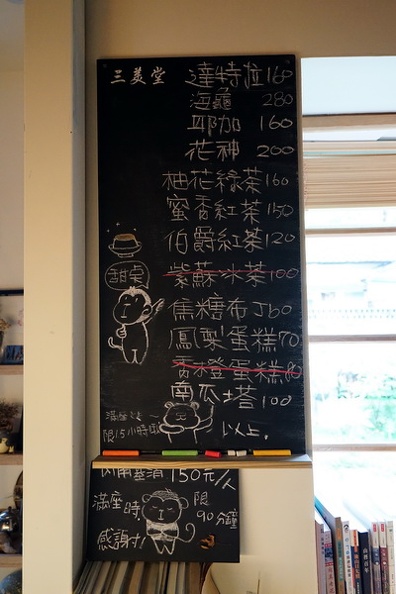 三美堂
達特拉160
海龜 280
耶加 160
花神 200
柚花綠茶160
蜜香紅茶150
伯爵紅茶120
甜桌
紫蘇冰茶100
焦糖布丁60
鳳梨蛋糕70
香橙蛋糕80
南瓜塔100
限1.5小時
以上.
內用基消150元/人
滿座時,
限
90分鐘
感謝!